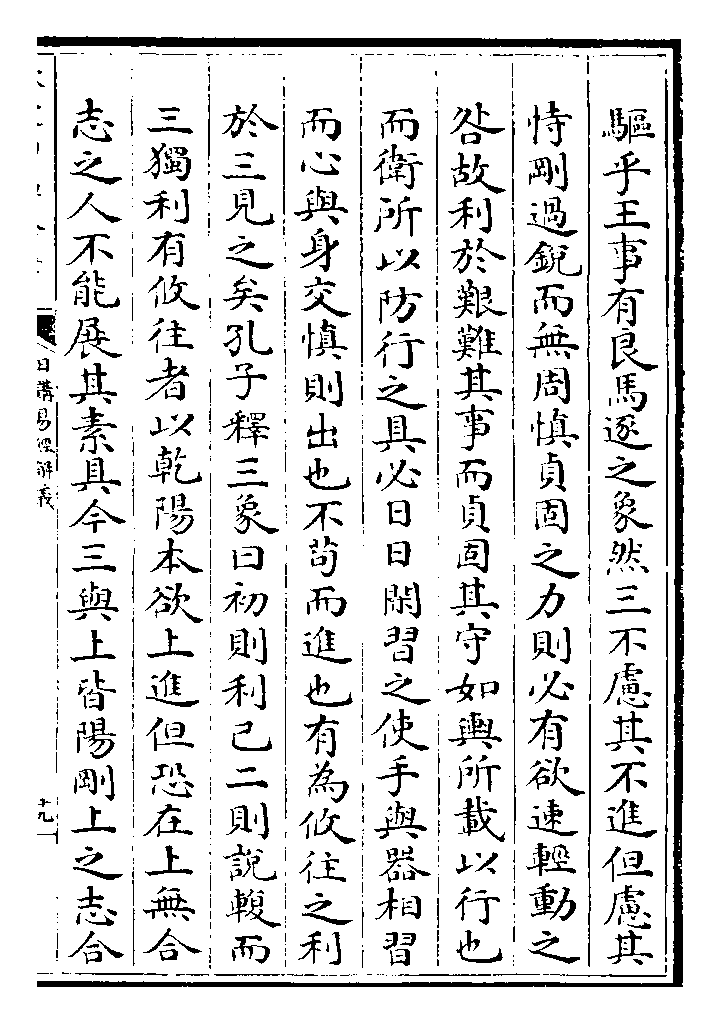 驅乎王事有良馬逐之象然三不慮其不進但慮其
恃剛過銳而無周慎貞固之力則必有欲速輕動之
咎故利於艱難其事而貞固其守如輿所載以行也
而衛所以防行之具必日日閑習之使手與器相習
而心與身交慎則出也不茍而進也有為攸往之利
於三見之矣孔子釋三象曰初則利已二則說輹而
三獨利有攸往者以乾陽本欲上進但恐在上無合
志之人不能展其素具今三與上皆陽剛上之志合
日講易經解義
十九